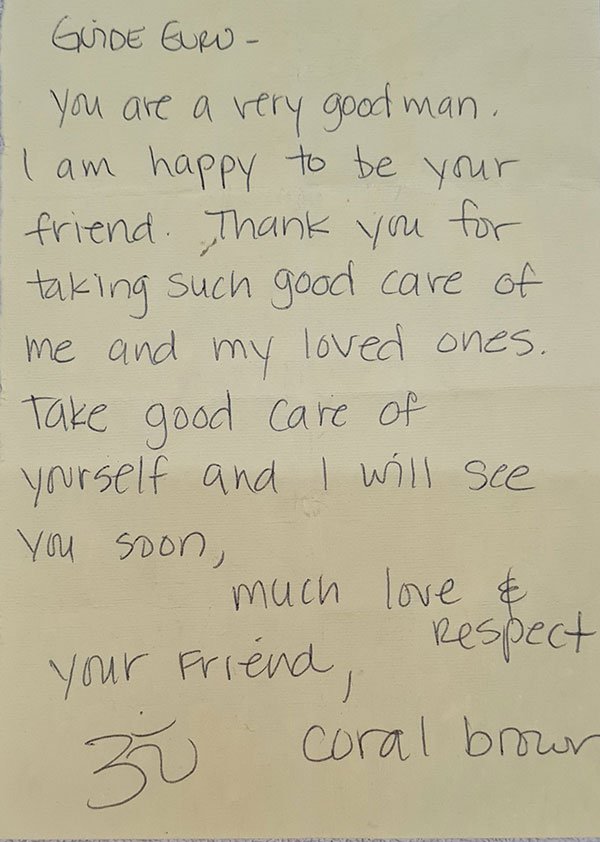 GUIDE GURU -
You are a very good man.
I am happy to be your
friend. Thank you for
taking such good care of
me and my loved ones.
Take good care of
yourself and I will see
you soon,
much love &
Respect
your Friend,
ॐ coral brown